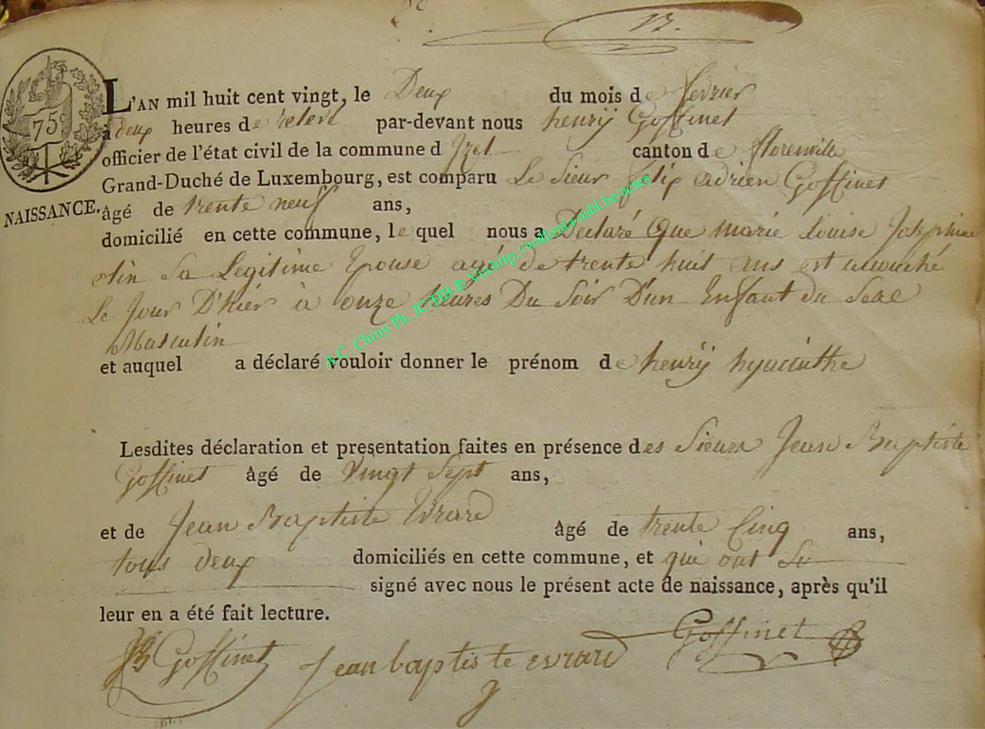 12.
75c
L'AN mil huit cent vingt, le Deux du mois de fevrier
a deux heures de relevé par-devant nous henrÿ Goffinet
officier de l'état civil de la commune d Jzel canton de florenville
Grand-Duché de Luxembourg, est comparu Le Sieur felix adrien Goffinet
NAISSANCE. âgé de trente neuf ans,
domicilié en cette commune, le quel nous a Declaré Que marie Louise Josephine
sa Legitime Epouse agée de trente huit ans est accouché
Le Jour D'hier à onze heures Du Soir D'un Enfant du Sexe
Masculin
et auquel a déclaré vouloir donner le prénom de henrÿ hyacinthe
Lesdites déclaration et presentation faites en présence des Sieurs Jean Baptiste
Goffinet âgé de Vingt Sept ans,
et de Jean Baptiste Evrard âgé de trente Cinq ans,
tous deux domiciliés en cette commune, et qui ont
signé avec nous le présent acte de naissance, après qu'il
leur en a été fait lecture.
JB Goffinet jean baptiste evrard Goffinet